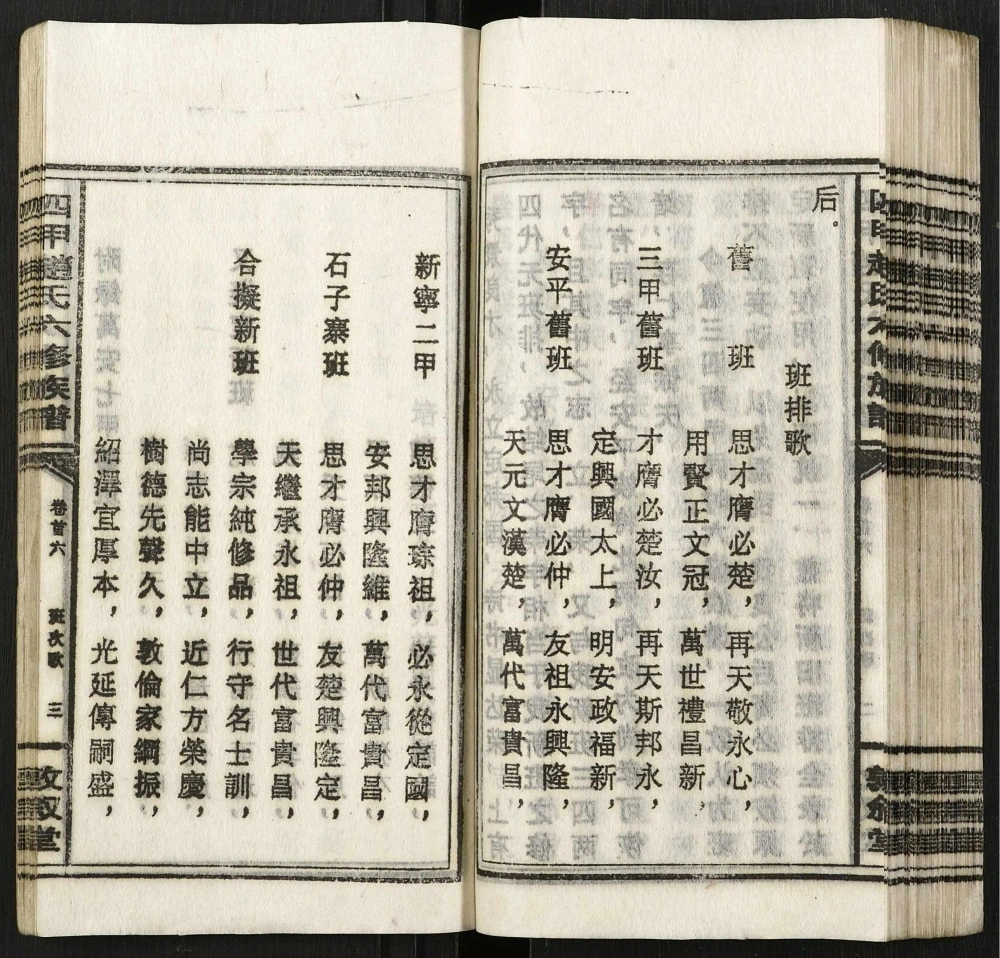 后。
班排歌
舊　班　思才膺必楚，再天敬永心，
用賢正文冠，萬世禮昌新，
三甲舊班　才膺必楚汝，再天斯邦永，
定興國太上，明安政福新，
安平舊班　思才膺必仲，友祖永興隆，
天元文漢楚，萬代富貴昌，
新寧二甲　思才膺琮祖，必永從定國，
石子寨班　安邦興隆維，萬代富貴昌，
思才膺必仲，友楚興隆定，
天繼承永祖，世代富貴昌，
合擬新班　學宗純修品，行守名士訓，
尚志能中立，近仁方榮慶，
樹德先聲久，敦倫家綱振，
紹澤宜厚本，光延傳嗣盛，
四甲趙氏六修族譜　卷首六　班次歌　三　敦敘堂